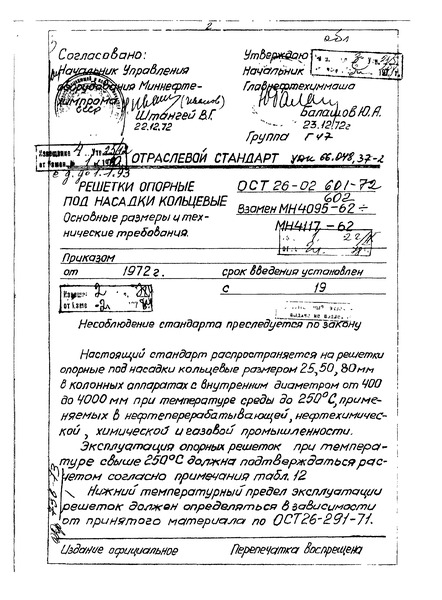 2
Согласовано:
Начальник Управления
оборудования Миннефте-
химпрома
СССР
Штангей В.Г.
22.12.72
Утверждаю
Начальник
Главнефтехиммаша
Балашов Ю.А.
23.12.72г
Группа Г47
ОТРАСЛЕВОЙ СТАНДАРТ УДК 66.048.37-2
РЕШЕТКИ ОПОРНЫЕ
ПОД НАСАДКИ КОЛЬЦЕВЫЕ
Основные размеры и тех-
нические требования.
ОСТ 26-02 601-72
602
Взамен МН4095-62÷
МН4117-62
Приказом
от 1972 г.
срок введения установлен
с 19
Несоблюдение стандарта преследуется по закону
Настоящий стандарт распространяется на решетки
опорные под насадки кольцевые размером 25, 50, 80мм
в колонных аппаратах с внутренним диаметром от 400
до 4000 мм при температуре среды до 250°С, приме-
няемых в нефтеперерабатывающей, нефтехимичес-
кой, химической и газовой промышленности.
Эксплуатация опорных решеток при темпера-
туре свыше 250°С должна подтверждаться рас-
четом согласно примечания табл. 12
Нижний температурный предел эксплуатации
решеток должен определяться в зависимости
от принятого материала по ОСТ26-291-71.
Издание официальное Перепечатка воспрещена